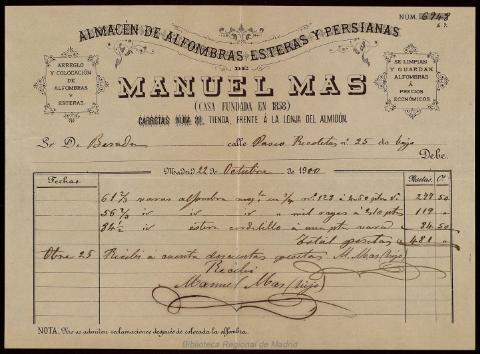 NÚM. 6943
ALMACÉN DE ALFOMBRAS ESTERAS Y PERSIANAS
DE
MANUEL MAS
(CASA FUNDADA EN 1858)
CARRETAS NÚM. TIENDA, FRENTE Á LA LONJA DEL ALMIDÓN.
ARREGLO
Y COLOCACIÓN
DE
ALFOMBRAS
Y
ESTERAS.
SE LIMPIAN
Y GUARDAN
ALFOMBRAS
Á
PRECIOS
ECONÓMICOS.
Sr. D. calle Paseo Recoletos nº 25 bajo
Debe.
Madrid 22 de Octubre de 1900
Fechas. Pesetas. Cs.
61 2/3 varas alfombra nº 123 á 4.50 277 50
56 2/3 id id mil rayas á 2,10 pts 119 "
34 1/2 id estera cordelillo á una pta vara 34 50
Total pesetas 431 "
Obre 25 Recibi a cuenta doscientas pesetas M. Mas (hijo)
Recibi
Manuel Mas (hijo)
NOTA. No se admiten reclamaciones después de colocada la alfombra.
Biblioteca Regional de Madrid